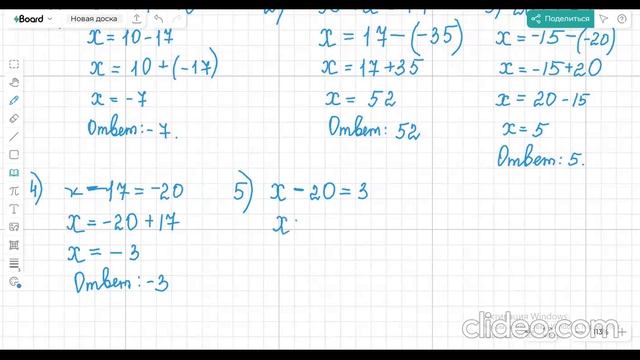 Board
Новая доска
Поделиться
x = 10 - 17
x = 10 + (-17)
x = -7
Ответ: -7.
x = 17 - (-35)
x = 17 + 35
x = 52
Ответ: 52
x = -15 - (-20)
x = -15 + 20
x = 20 - 15
x = 5
Ответ: 5.
4) x - 17 = -20
x = -20 + 17
x = -3
Ответ: -3
5) x - 20 = 3
x
Windows
clideo.com